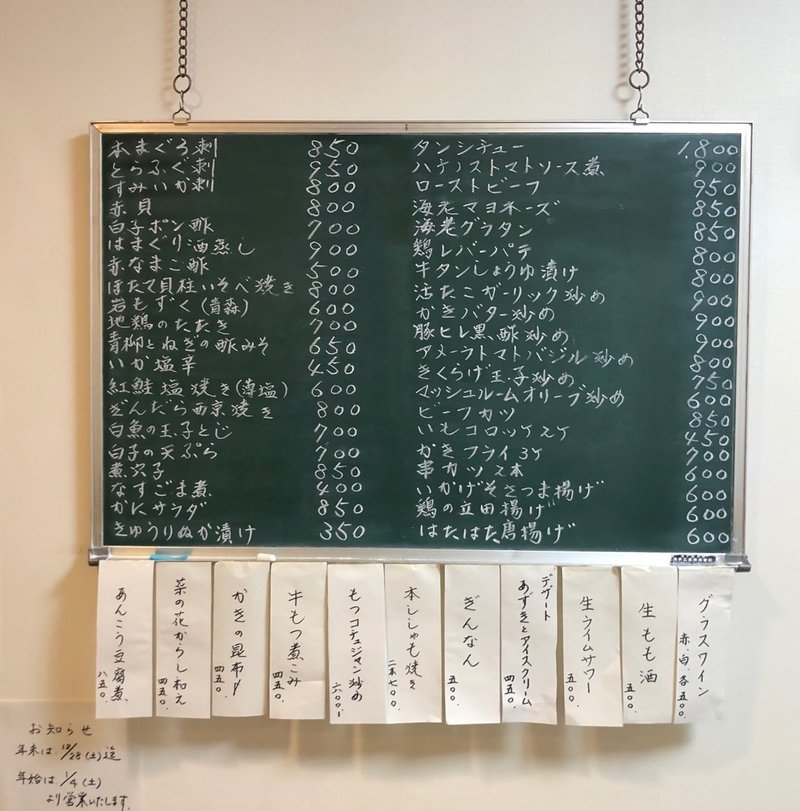 本まぐろ刺 850
とらふぐ刺 950
すみいか刺 800
赤貝 800
白子ポン酢 700
はまぐり酒蒸し 900
赤なまこ酢 500
ほたて貝柱いそべ焼き 800
岩もずく(青森) 600
地鶏のたたき 700
青柳とねぎの酢みそ 650
いか塩辛 450
紅鮭塩焼き(薄塩) 600
ぎんだら西京焼き 800
白魚の玉子とじ 700
白子の天ぷら 700
煮穴子 850
なすごま煮 400
かにサラダ 850
きゅうりぬか漬け 350
タンシチュー 1,800
ハチノストマトソース煮 900
ローストビーフ 950
海老マヨネーズ 850
海老グラタン 850
鶏レバーパテ 800
牛タンしょうゆ漬け 800
活たこガーリック炒め 900
かきバター炒め 900
豚ヒレ黒酢炒め 900
アメーラトマトバジル炒め 800
きくらげ玉子炒め 750
マッシュルームオリーブ炒め 600
ビーフカツ 850
いもコロッケ2ケ 450
かきフライ3ケ 700
串カツ2本 600
いかげそさつま揚げ 600
鶏の立田揚げ 600
はたはた唐揚げ 600
あんこう豆腐煮 八五〇.
菜の花からし和え 四五〇.
かきの昆布〆 四五〇.
牛もつ煮こみ 四五〇.
もつコチュジャン炒め 六〇〇.
本ししゃも焼き 二本七〇〇.
ぎんなん 五〇〇.
デザート
あずきとアイスクリーム 四五〇.
生ライムサワー 五〇〇.
生もも酒 五〇〇.
グラスワイン 赤、白、各五〇〇.
お知らせ
年末は 12/28(土)迄
年始は 1/4(土)
より営業いたします.